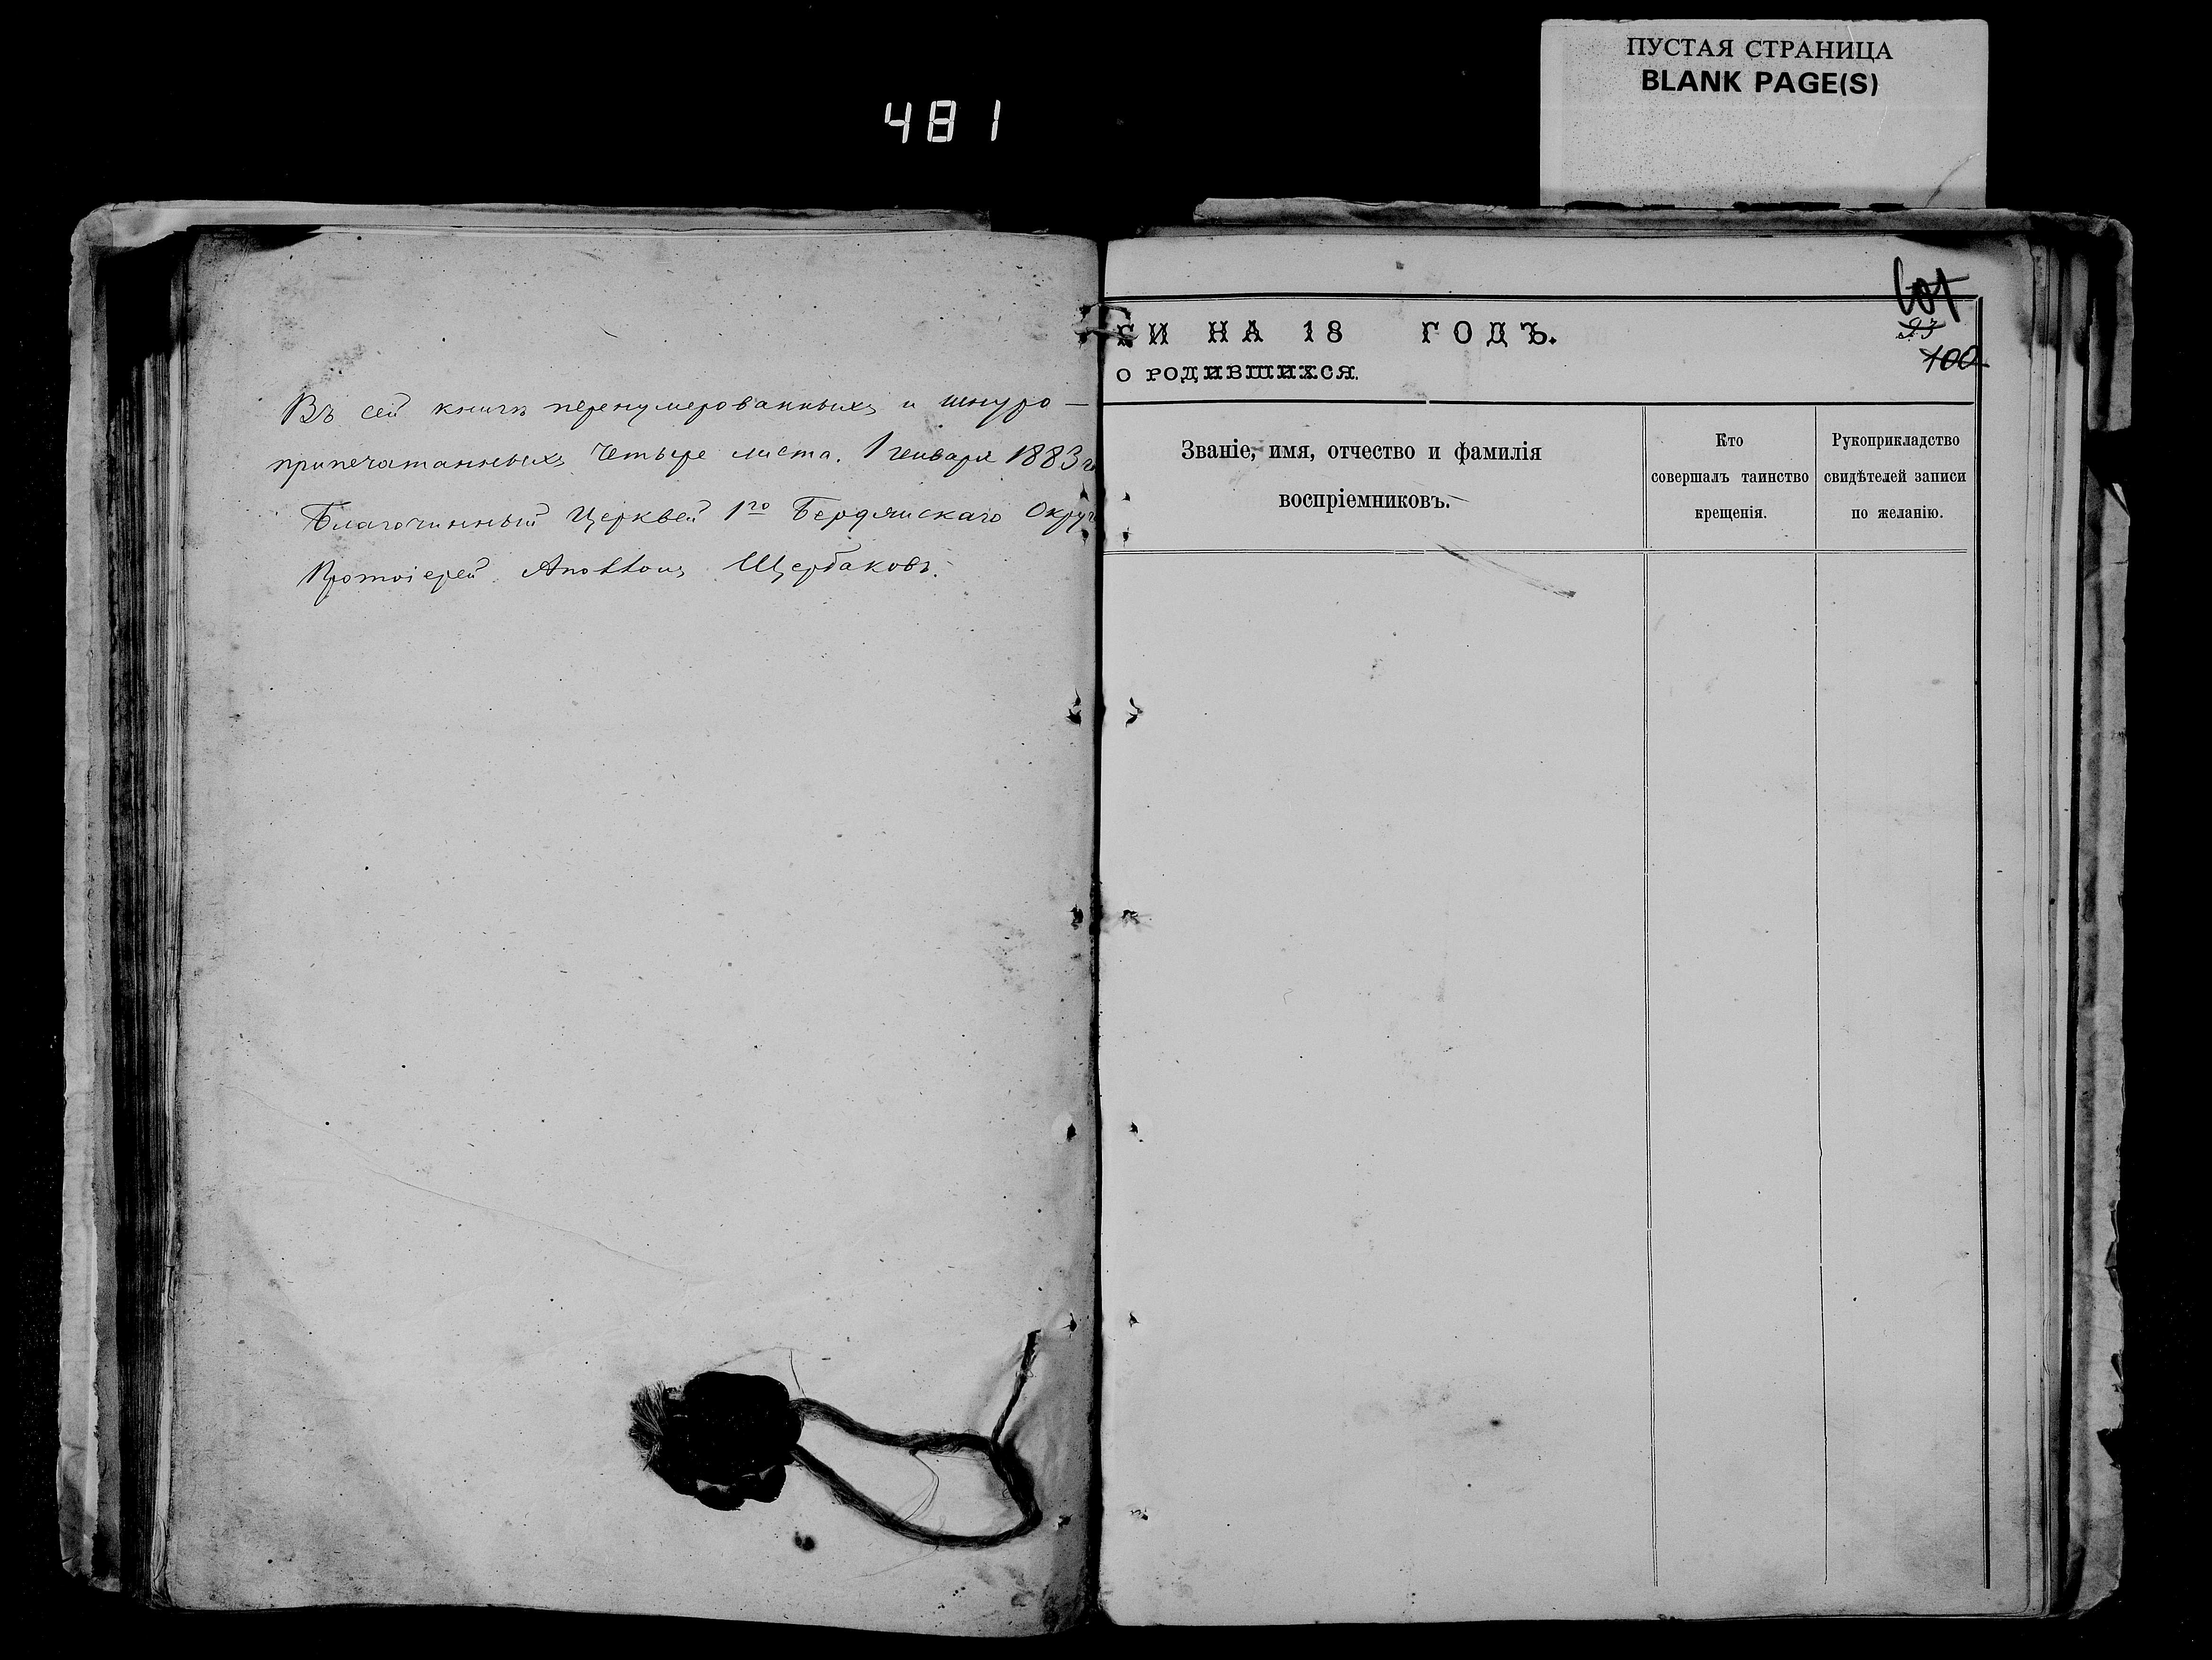 ПУСТАЯ СТРАНИЦА
BLANK PAGE(S)
481
Въ сей книгѣ перенумерованныхъ и шнуро-
припечатанныхъ четыре листа. 1 генваря 1883 г.
Благочинный Церквей 1го Бердянскаго Округ
Протоіерей Аполлонъ Щербаковъ.
ГИ НА 18 ГОДЪ.
О РОДИВШИХСЯ.
93
100
Званіе, имя, отчество и фамилія
воспріемниковъ.
Кто
совершалъ таинство
крещенія.
Рукоприкладство
свидѣтелей записи
по желанію.